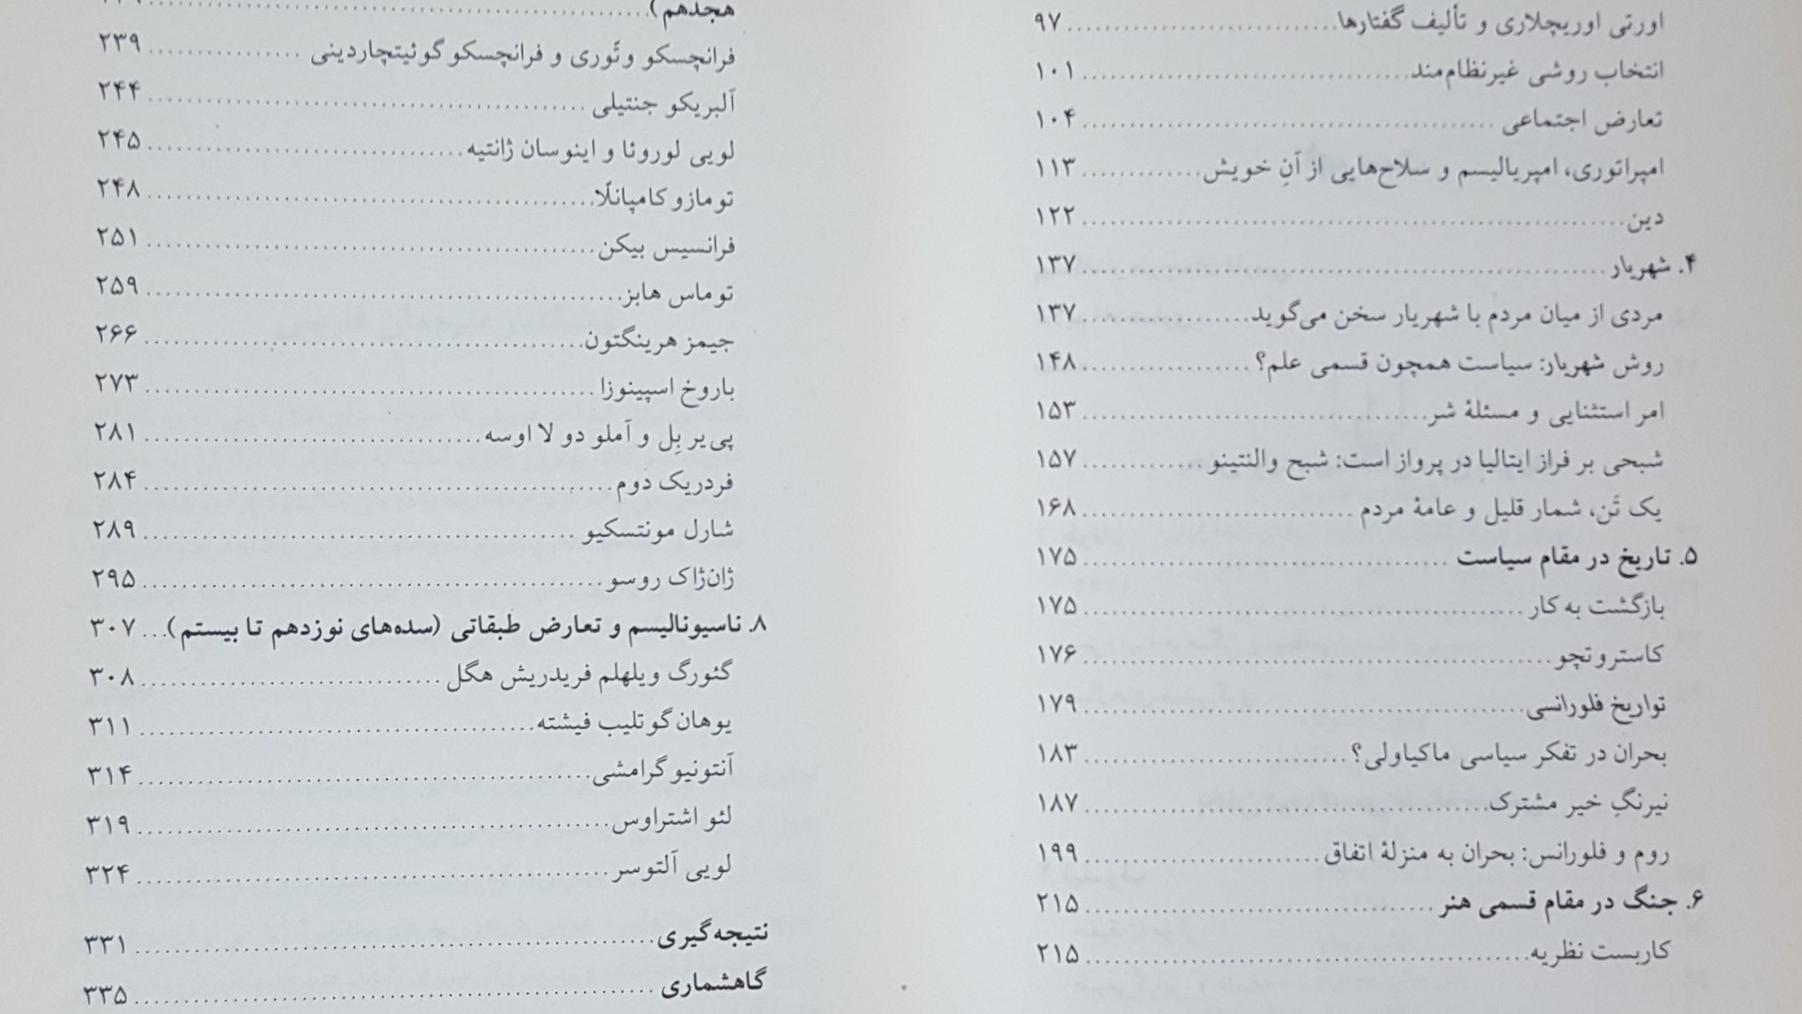 اورتی اوریچلاری و تألیف گفتارها ۹۷
انتخاب روشی غیرنظام‌مند ۱۰۱
تعارض اجتماعی ۱۰۴
امپراتوری، امپریالیسم و سلاح‌هایی از آنِ خویش ۱۱۳
دین ۱۲۲
۴. شهریار ۱۳۷
مردی از میان مردم با شهریار سخن می‌گوید ۱۳۷
روش شهریار: سیاست همچون قسمی علم؟ ۱۴۸
امر استثنایی و مسئلهٔ شر ۱۵۳
شبحی بر فراز ایتالیا در پرواز است: شبح والنتینو ۱۵۷
یک تَن، شمار قلیل و عامهٔ مردم ۱۶۸
۵. تاریخ در مقام سیاست ۱۷۵
بازگشت به کار ۱۷۵
کاستروتچو ۱۷۶
تواریخ فلورانسی ۱۷۹
بحران در تفکر سیاسی ماکیاولی؟ ۱۸۳
نیرنگِ خیر مشترک ۱۸۷
روم و فلورانس: بحران به منزلهٔ اتفاق ۱۹۹
۶. جنگ در مقام قسمی هنر ۲۱۵
کاربست نظریه ۲۱۵
هجدهم)
فرانچسکو وتّوری و فرانچسکو گوئیتچاردینی ۲۳۹
آلبریکو جنتیلی ۲۴۴
لویی لوروئا و اینوسان ژانتیه ۲۴۵
تومازو کامپانلّا ۲۴۸
فرانسیس بیکن ۲۵۱
توماس هابز ۲۵۹
جیمز هرینگتون ۲۶۶
باروخ اسپینوزا ۲۷۳
پی‌یر بِل و آملو دو لا اوسه ۲۸۱
فردریک دوم ۲۸۴
شارل مونتسکیو ۲۸۹
ژان‌ژاک روسو ۲۹۵
۸. ناسیونالیسم و تعارض طبقاتی (سده‌های نوزدهم تا بیستم) ۳۰۷
گئورگ ویلهلم فریدریش هگل ۳۰۸
یوهان گوتلیب فیشته ۳۱۱
آنتونیو گرامشی ۳۱۴
لئو اشتراوس ۳۱۹
لویی آلتوسر ۳۲۴
نتیجه‌گیری ۳۳۱
گاهشماری ۳۳۵